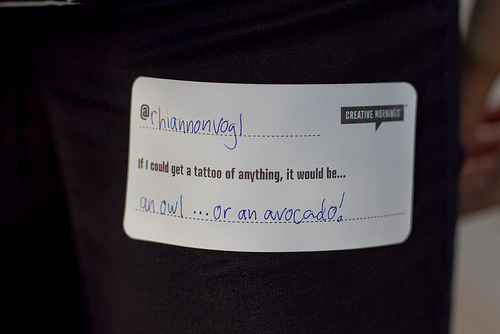 @rhiannonvogl
CREATIVE MORNINGS
If I could get a tattoo of anything, it would be...
an owl ... or an avocado!